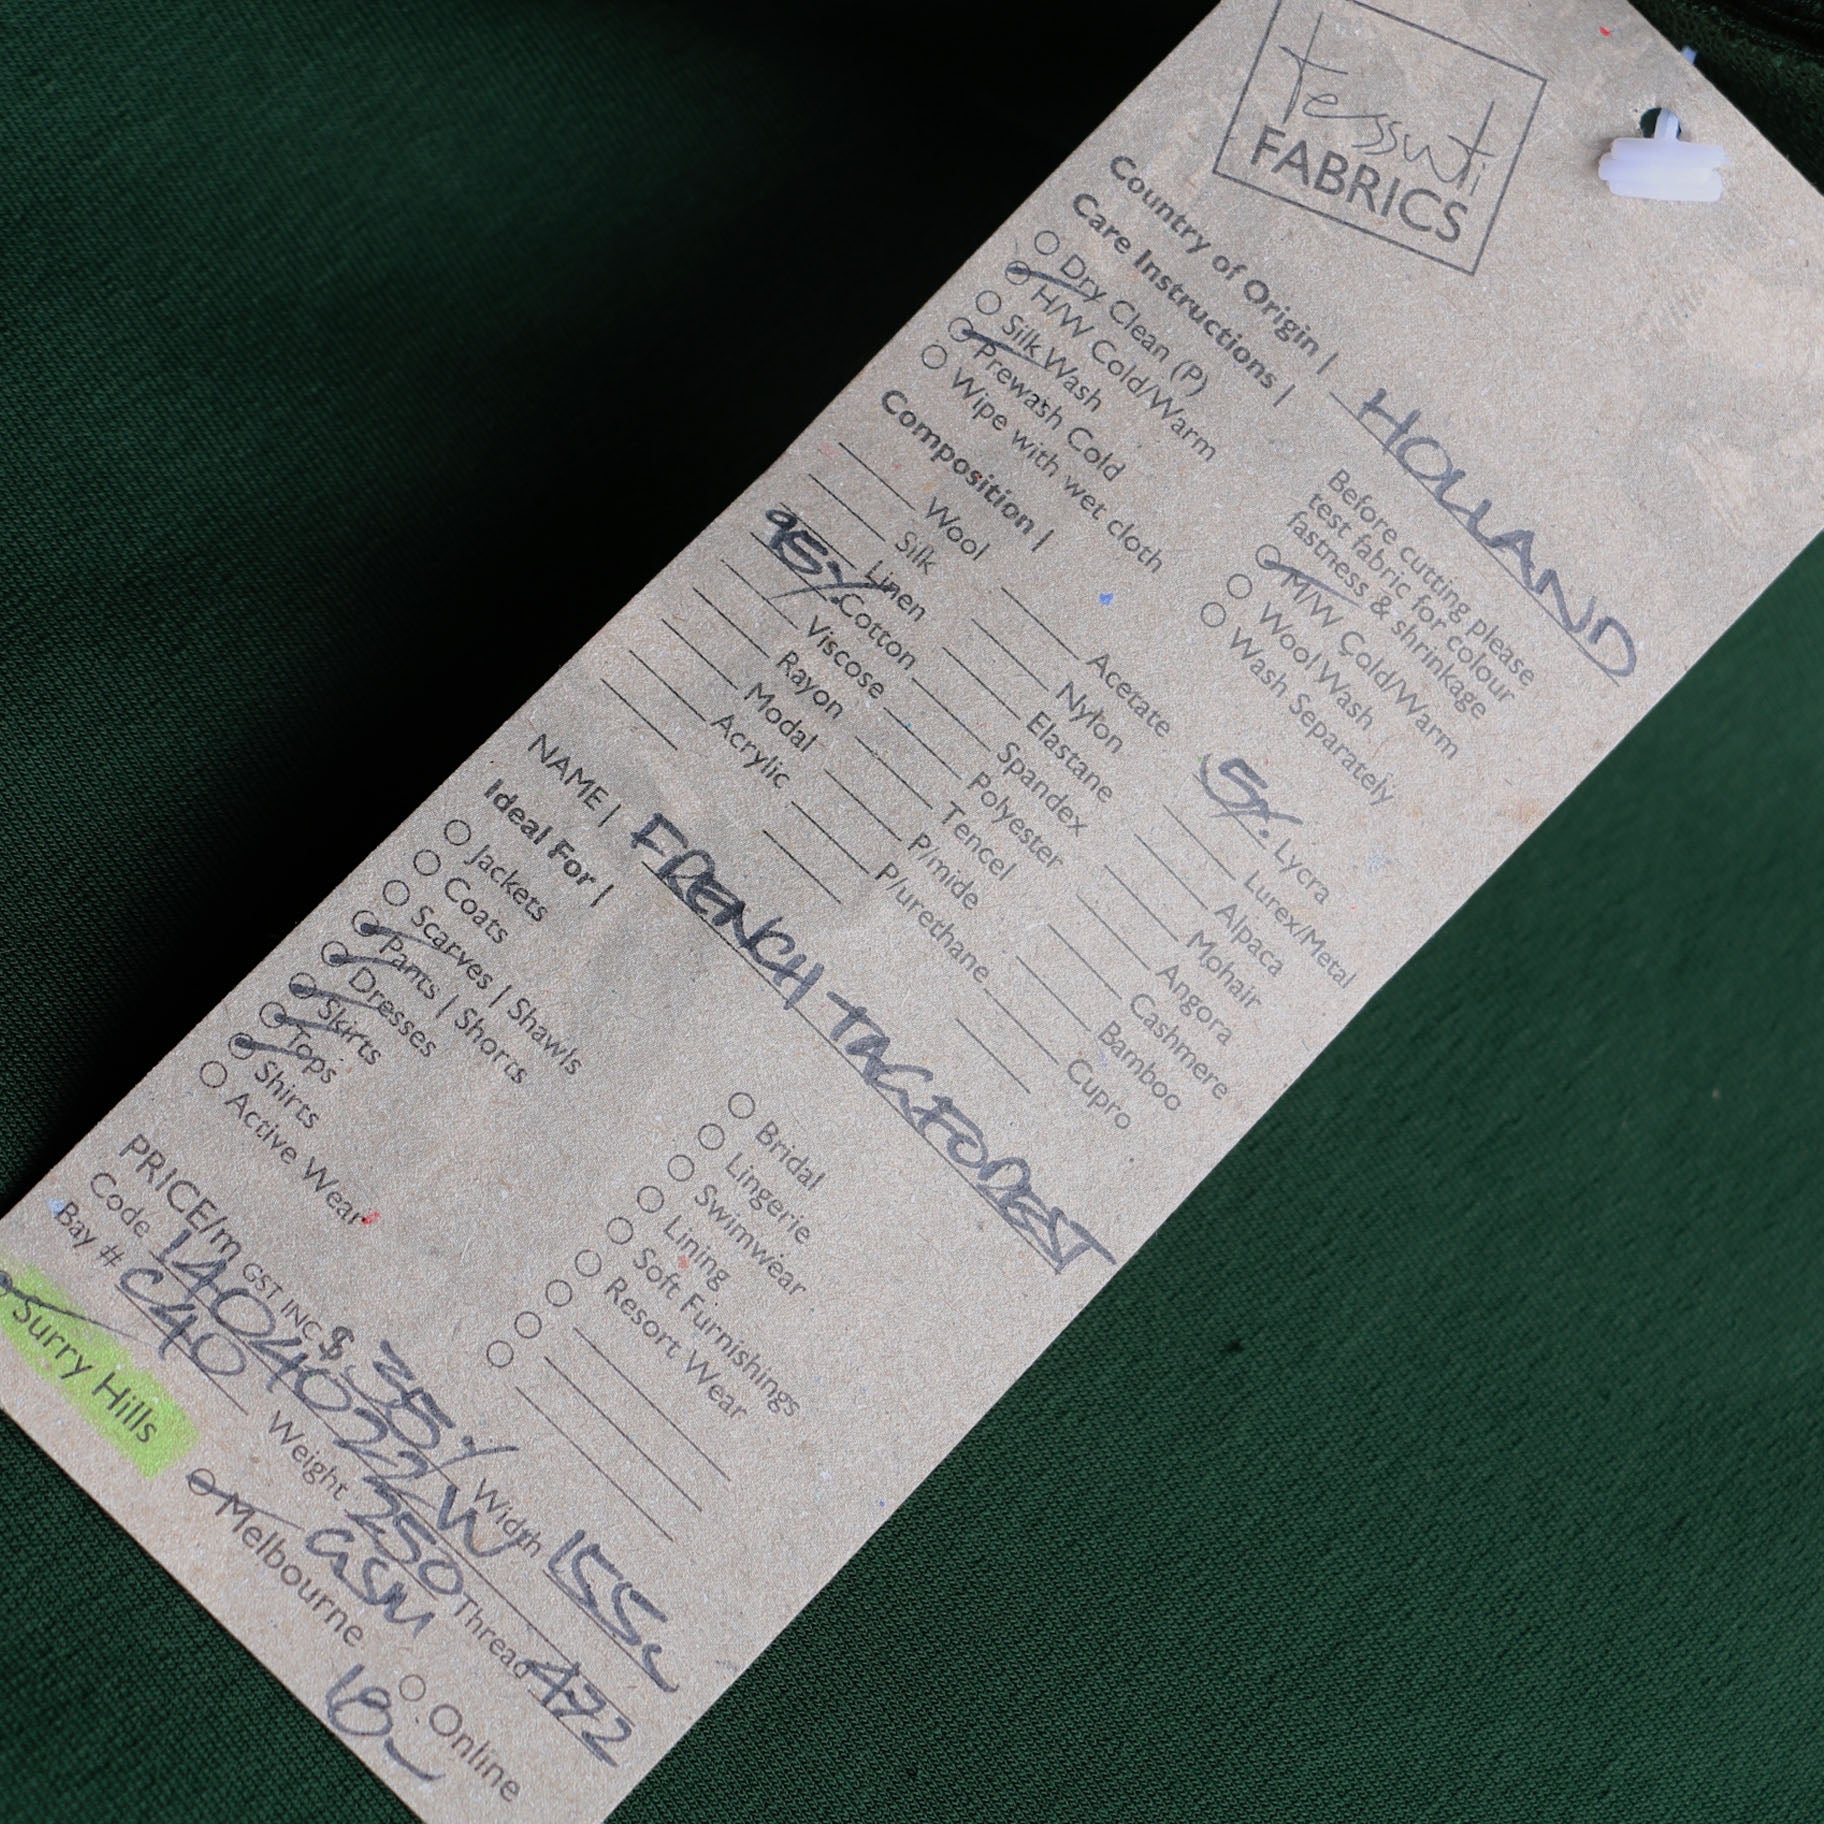 tessuti
FABRICS
Country of Origin | HOLLAND
Care Instructions |
Dry Clean (P)
H/W Cold/Warm
Silk Wash
Prewash Cold
Wipe with wet cloth
Before cutting please
test fabric for colour
fastness & shrinkage
M/W Cold/Warm
Wool Wash
Wash Separately
Composition |
Wool
Silk
Linen
95% Cotton
Viscose
Rayon
Modal
Acrylic
Acetate
Nylon
Elastane
Spandex
Polyester
Tencel
P/mide
P/urethane
5% Lycra
Lurex/Metal
Alpaca
Mohair
Angora
Cashmere
Bamboo
Cupro
NAME | FRENCH TAC. FOREST
Ideal For |
Jackets
Coats
Scarves | Shawls
Pants | Shorts
Dresses
Skirts
Tops
Shirts
Active Wear
Bridal
Lingerie
Swimwear
Lining
Soft Furnishings
Resort Wear
PRICE/m GST INC $ 35 Width 155c
Code 1404022W Thread 472
Bay # C40 Weight 250 GSM
Surry Hills Melbourne Online
18